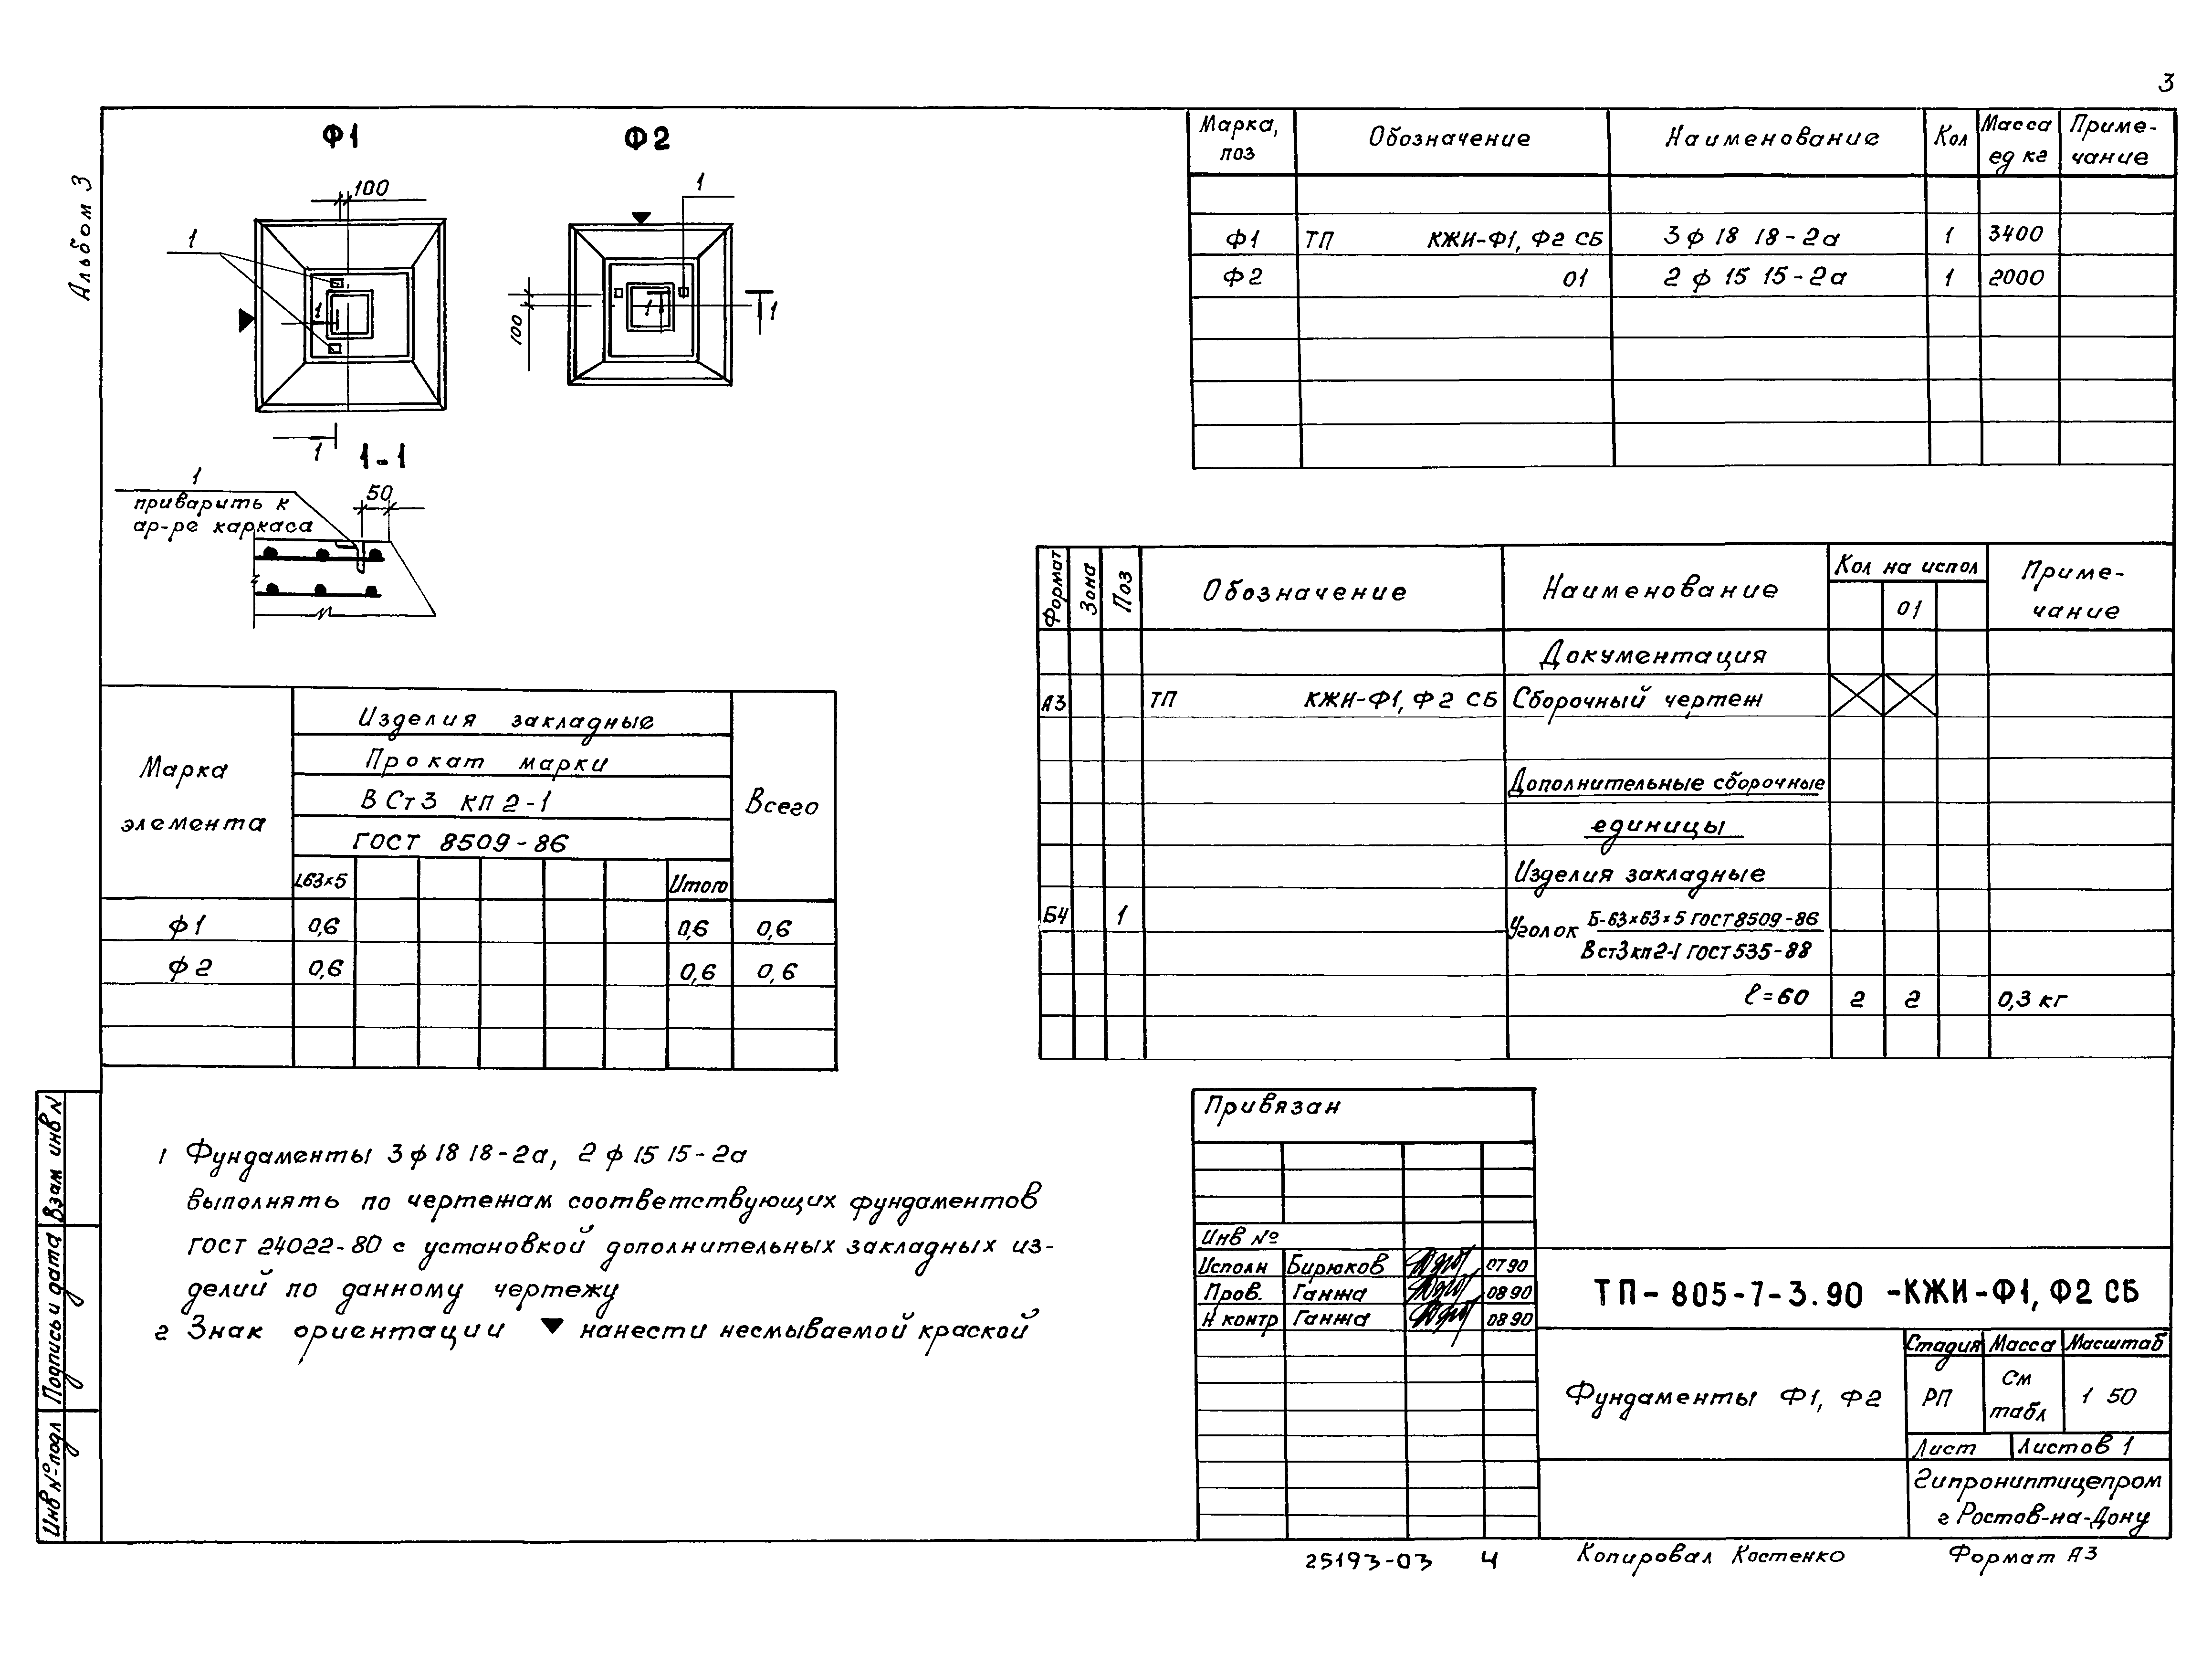 3
Альбом 3
Ф1
Ф2
100
1
1
1
1
100
1
1
1-1
1
приварить к
ар-ре каркаса
50
Марка, поз
Обозначение
Наименование
Кол
Масса ед кг
Приме-
чание
Ф1 ТП КЖИ-Ф1, Ф2 СБ 3ф 18 18-2а 1 3400
Ф2 01 2ф 15 15-2а 1 2000
Формат
Зона
Поз
Обозначение
Наименование
Кол на испол
01
Приме-
чание
Документация
А3 ТП КЖИ-Ф1, Ф2 СБ Сборочный чертеж
Дополнительные сборочные
единицы
Изделия закладные
Б4 1 Уголок Б-63×63×5 ГОСТ 8509-86
ВСт3кп2-1 ГОСТ 535-88
ℓ=60 2 2 0,3 кг
Марка
элемента
Изделия закладные
Прокат марки
ВСт3 кп2-1
ГОСТ 8509-86
Всего
L63×5 Итого
Ф1 0,6 0,6 0,6
Ф2 0,6 0,6 0,6
1 Фундаменты 3ф 18 18-2а, 2ф 15 15-2а
выполнять по чертежам соответствующих фундаментов
ГОСТ 24022-80 с установкой дополнительных закладных из-
делий по данному чертежу
2 Знак ориентации ▼ нанести несмываемой краской
Взам инв N
Подпись и дата
Инв №подл
Привязан
Инв №
Исполн Бирюков 07 90
Пров. Ганжа 08 90
Н контр Ганжа 08 90
ТП-805-7-3.90 -КЖИ-Ф1, Ф2 СБ
Фундаменты Ф1, Ф2
Стадия Масса Масштаб
РП См табл 1 50
Лист Листов 1
Гипрониптицепром
г Ростов-на-Дону
25193-03 4 Копировал Костенко Формат А3